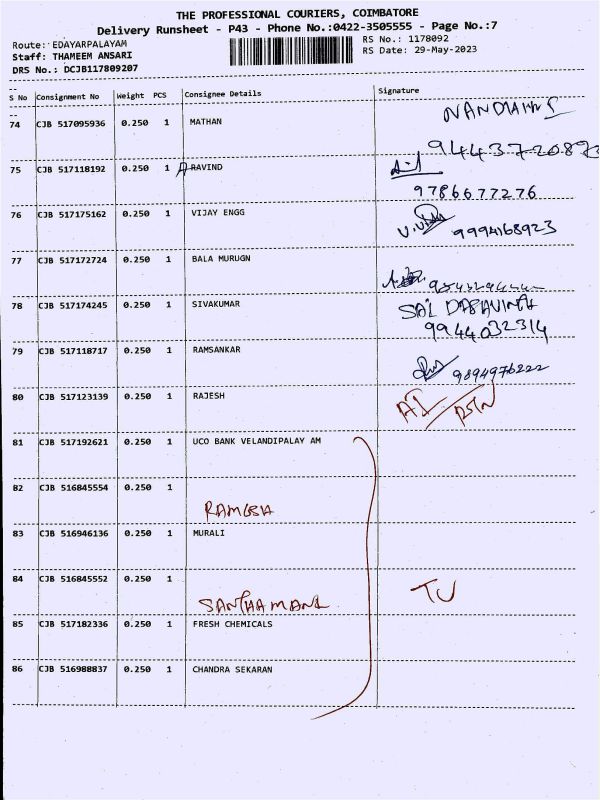 THE PROFESSIONAL COURIERS, COIMBATORE
Delivery Runsheet - P43 - Phone No.:0422-3505555 - Page No.:7
Route: EDAYARPALAYAM
RS No.: 1178092
Staff: THAMEEM ANSARI
RS Date: 29-May-2023
DRS No.: DCJB117809207
S No Consignment No Weight PCS Consignee Details Signature
74 CJB 517095936 0.250 1 MATHAN
75 CJB 517118192 0.250 1 RAVIND
9786677276
76 CJB 517175162 0.250 1 VIJAY ENGG
9994168923
77 CJB 517172724 0.250 1 BALA MURUGN
78 CJB 517174245 0.250 1 SIVAKUMAR
SAI
9944032314
79 CJB 517118717 0.250 1 RAMSANKAR
9894976222
80 CJB 517123139 0.250 1 RAJESH
81 CJB 517192621 0.250 1 UCO BANK VELANDIPALAY AM
82 CJB 516845554 0.250 1
83 CJB 516946136 0.250 1 MURALI
84 CJB 516845552 0.250 1
SANTHAMANI
85 CJB 517182336 0.250 1 FRESH CHEMICALS
86 CJB 516988837 0.250 1 CHANDRA SEKARAN